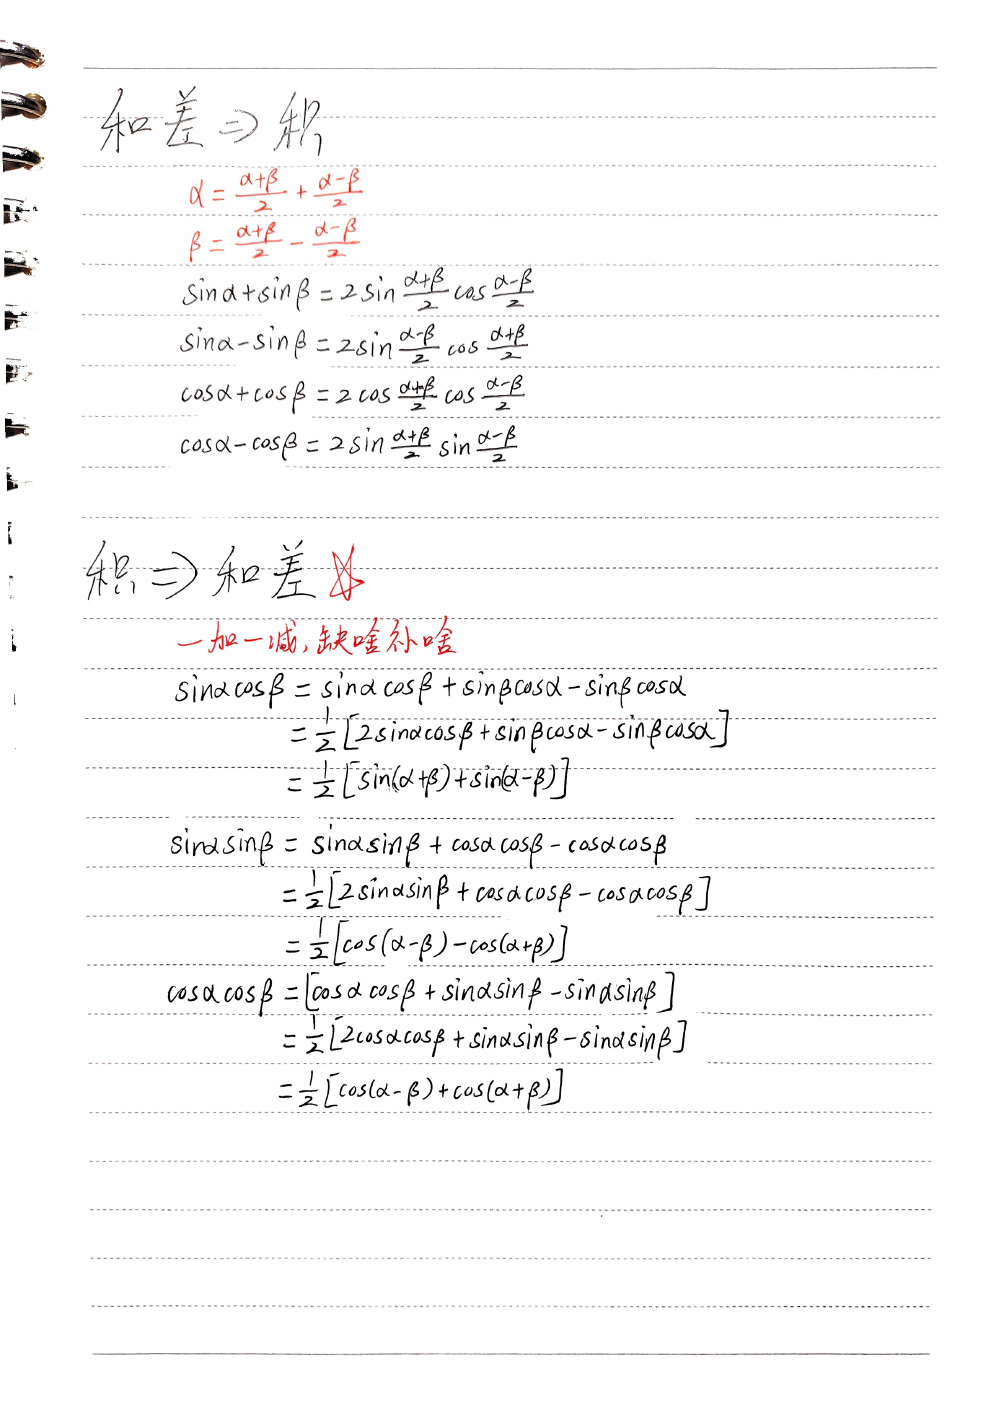 和差⇒积
α = (α+β)/2 + (α-β)/2
β = (α+β)/2 - (α-β)/2
sinα+sinβ = 2sin (α+β)/2 cos (α-β)/2
sinα-sinβ = 2sin (α-β)/2 cos (α+β)/2
cosα+cosβ = 2cos (α+β)/2 cos (α-β)/2
cosα-cosβ = 2sin (α+β)/2 sin (α-β)/2
积⇒和差☆
一加一减,缺啥补啥
sinαcosβ = sinαcosβ + sinβcosα - sinβcosα
= 1/2 [2sinαcosβ + sinβcosα - sinβcosα]
= 1/2 [sin(α+β)+sin(α-β)]
sinαsinβ = sinαsinβ + cosαcosβ - cosαcosβ
= 1/2 [2sinαsinβ + cosαcosβ - cosαcosβ]
= 1/2 [cos(α-β)-cos(α+β)]
cosαcosβ = [cosαcosβ + sinαsinβ - sinαsinβ]
= 1/2 [2cosαcosβ + sinαsinβ - sinαsinβ]
= 1/2 [cos(α-β)+cos(α+β)]